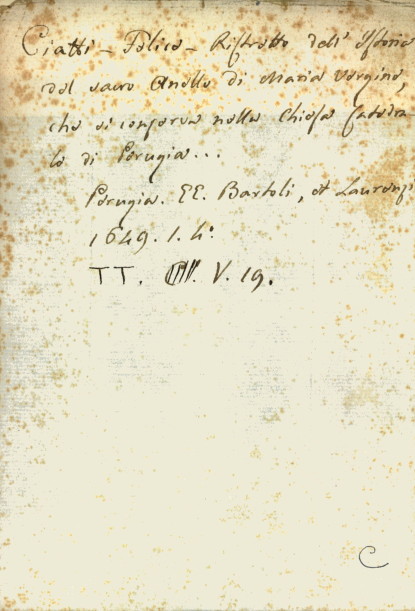 Ciatti - Felice - Ristretto dell' Istoria
del sacro Anello di Maria Vergine,
che si conserva nella Chiesa Catedra-
le di Perugia...
Perugia. EE. Bartoli, et Laurenzi
1649. 1. 4°
TT. V. 19.
C